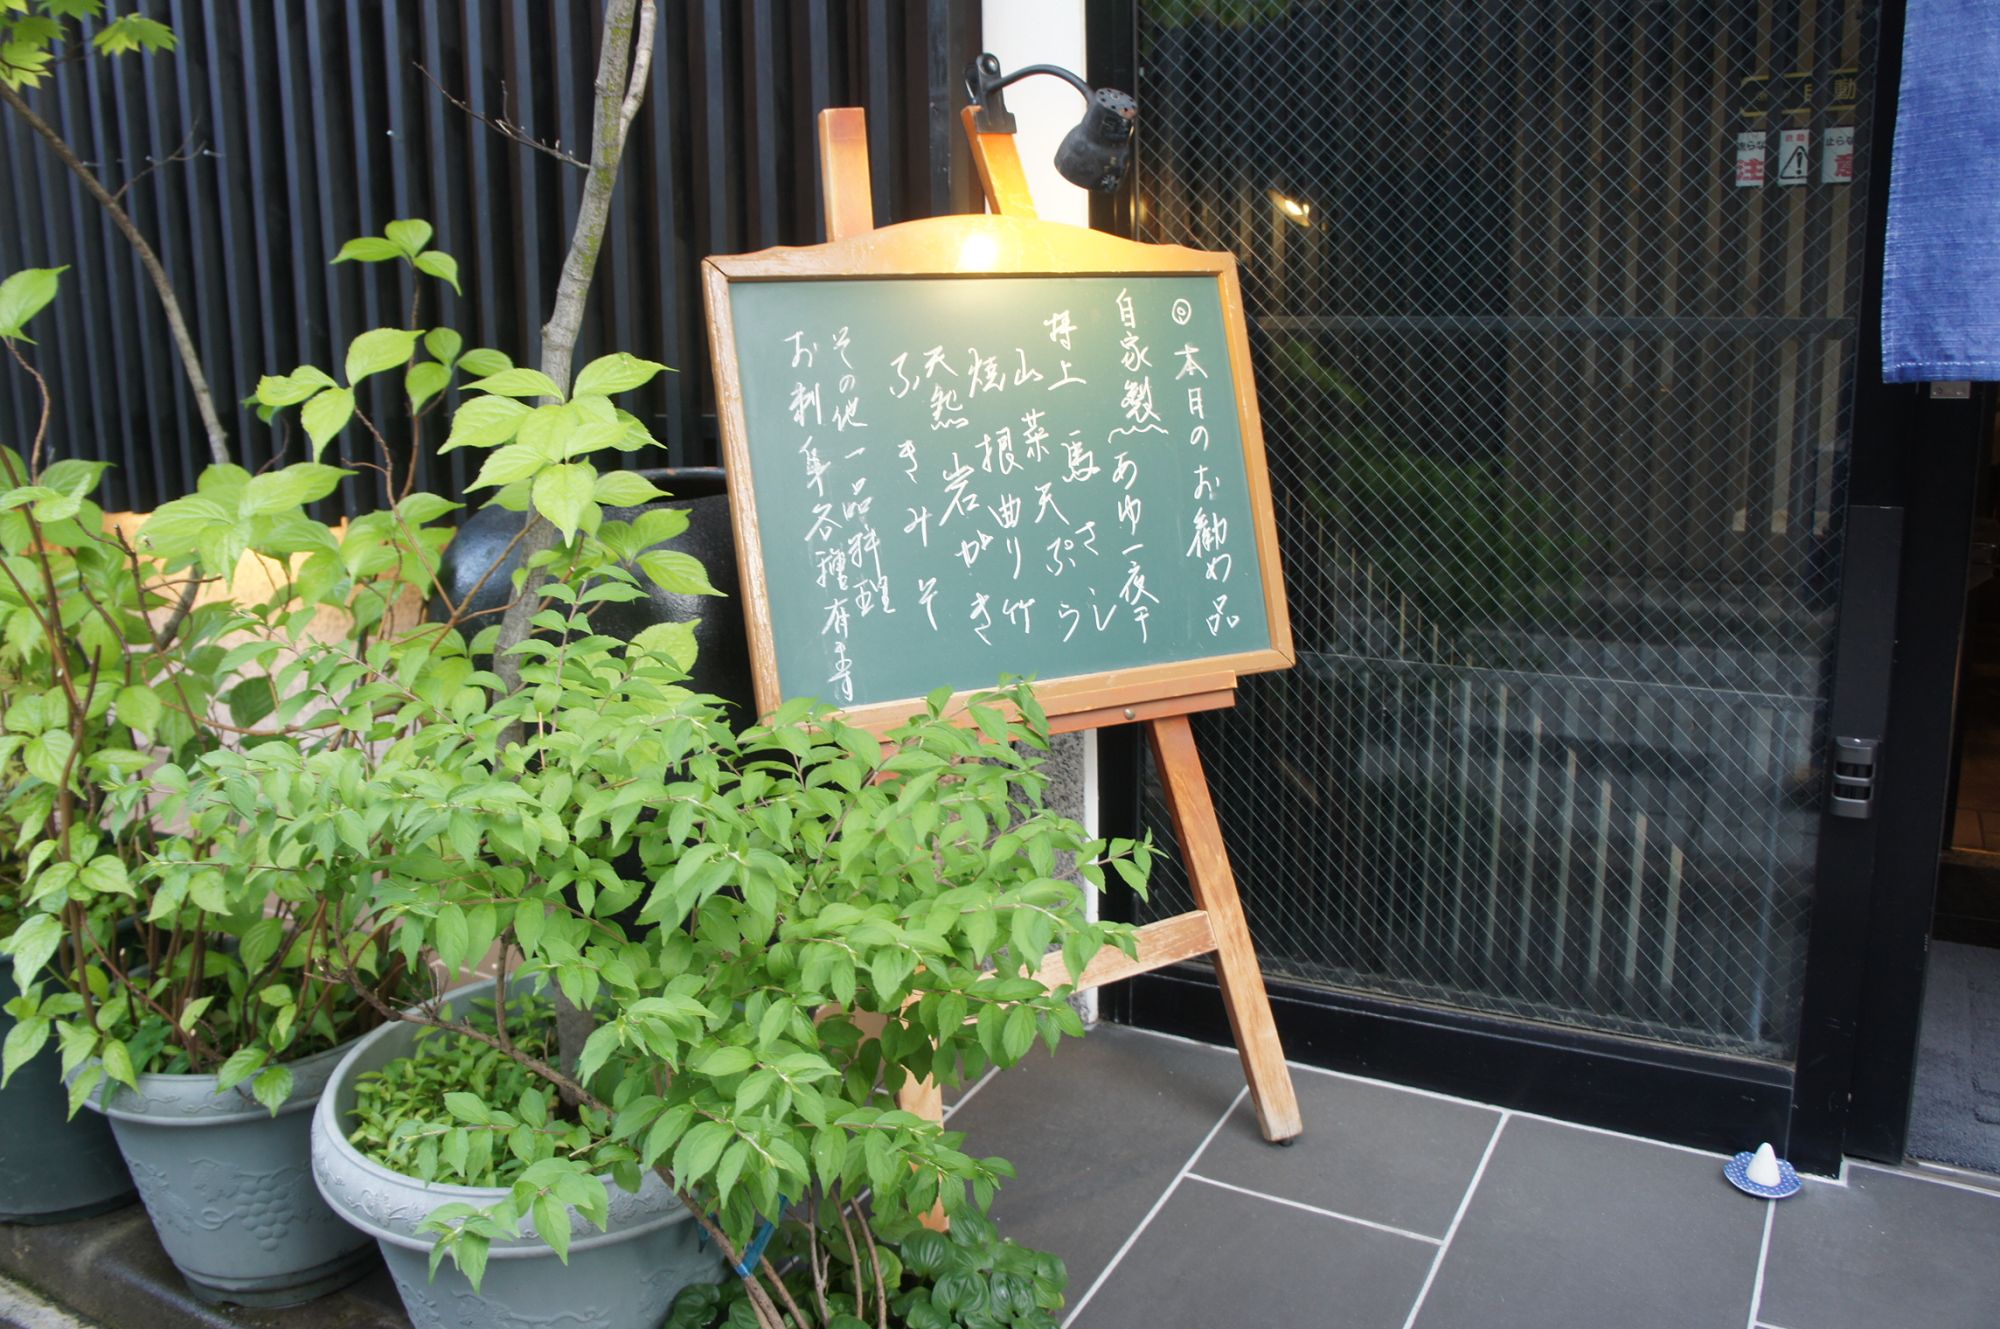 本日のお勧め品
自家製あゆ一夜干
特上馬さし
山菜天ぷら
焼根曲り竹
天然岩がき
ふきみそ
その他一品料理
お刺身各種有ます
自動
注意